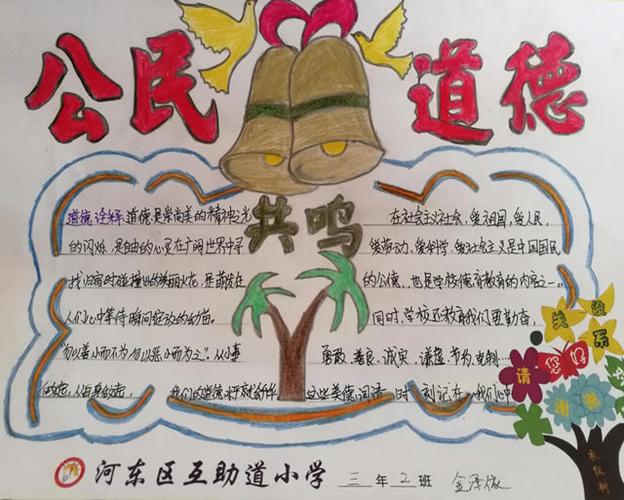 公民 道德
共鸣
道德诠释:道德是崇高美的精神之光
的闪烁,是自由的心灵在广阔世界中寻
找归宿时碰撞出的绚丽火花,是萌发在
人们心中等待瞬间绽放的幼苗。
“勿以善小而不为,勿以恶小而为之”。从小事
做起,从自身做起,
在社会主义社会,爱祖国,爱人民,
爱劳动、爱科学、爱社会主义是中国国民
的公德,也是学校德育教育的内容之一。
同时,学校还教育我们要勤奋,
勇敢、善良、诚实、谦虚、节约、
时刻记在我们心中
没关系
请
您好
谢谢
礼仪树
河东区互助道小学 三年2班